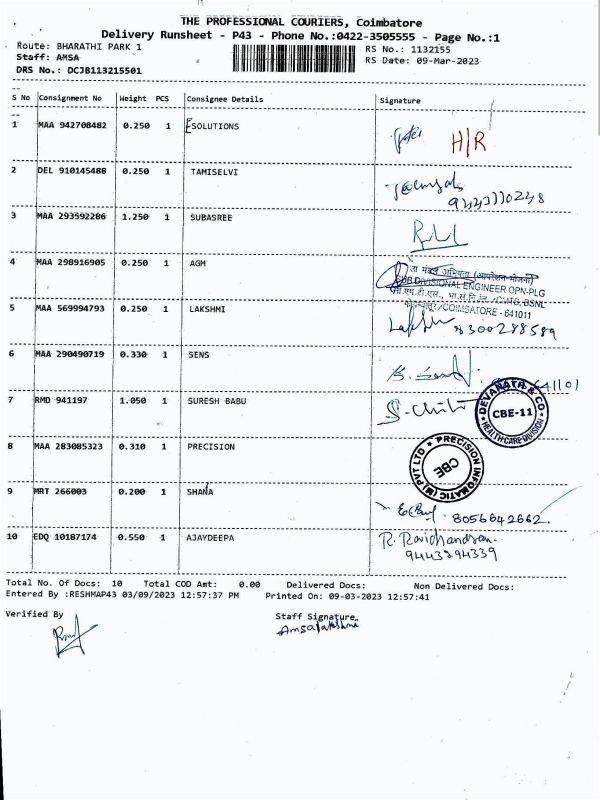 THE PROFESSIONAL COURIERS, Coimbatore
Delivery Runsheet - P43 - Phone No.:0422-3505555 - Page No.:1
Route: BHARATHI PARK 1 RS No.: 1132155
Staff: AMSA RS Date: 09-Mar-2023
DRS No.: DCJB113215501
S No Consignment No Weight PCS Consignee Details Signature
1 MAA 942708482 0.250 1 ESOLUTIONS H/R
2 DEL 910145488 0.250 1 TAMISELVI
3 MAA 293592286 1.250 1 SUBASREE
4 MAA 298916905 0.250 1 AGM
SUB DIVISIONAL ENGINEER OPN-PLG
/COIMBATORE - 641011
5 MAA 569994793 0.250 1 LAKSHMI 8300288589
6 MAA 290490719 0.330 1 SENS
7 RMD 941197 1.050 1 SURESH BABU
DEVANATH & CO. CBE-11 HEALTH CARE DIVISION
8 MAA 283085323 0.310 1 PRECISION
PRECISION INFOMATIC (M) PVT LTD CBE
9 MRT 266003 0.200 1 SHANA 8056642662.
10 EDQ 10187174 0.550 1 AJAYDEEPA R. Ravichandran
9443294339
Total No. Of Docs: 10 Total COD Amt: 0.00 Delivered Docs: Non Delivered Docs:
Entered By :RESHMAP43 03/09/2023 12:57:37 PM Printed On: 09-03-2023 12:57:41
Verified By Staff Signature